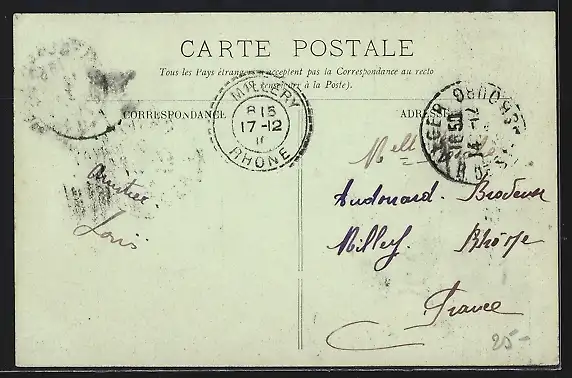 CARTE POSTALE
Tous les Pays étrangers n'acceptent pas la Correspondance au recto
à la Poste).
CORRESPONDANCE
ADRESSE
MILLERY
8 15
17-12
RHONE
ALGER
16 50
14-12
Melle
Amitié
Louis
Audouard. Brodeuse
Milley. Rhône
France
25-